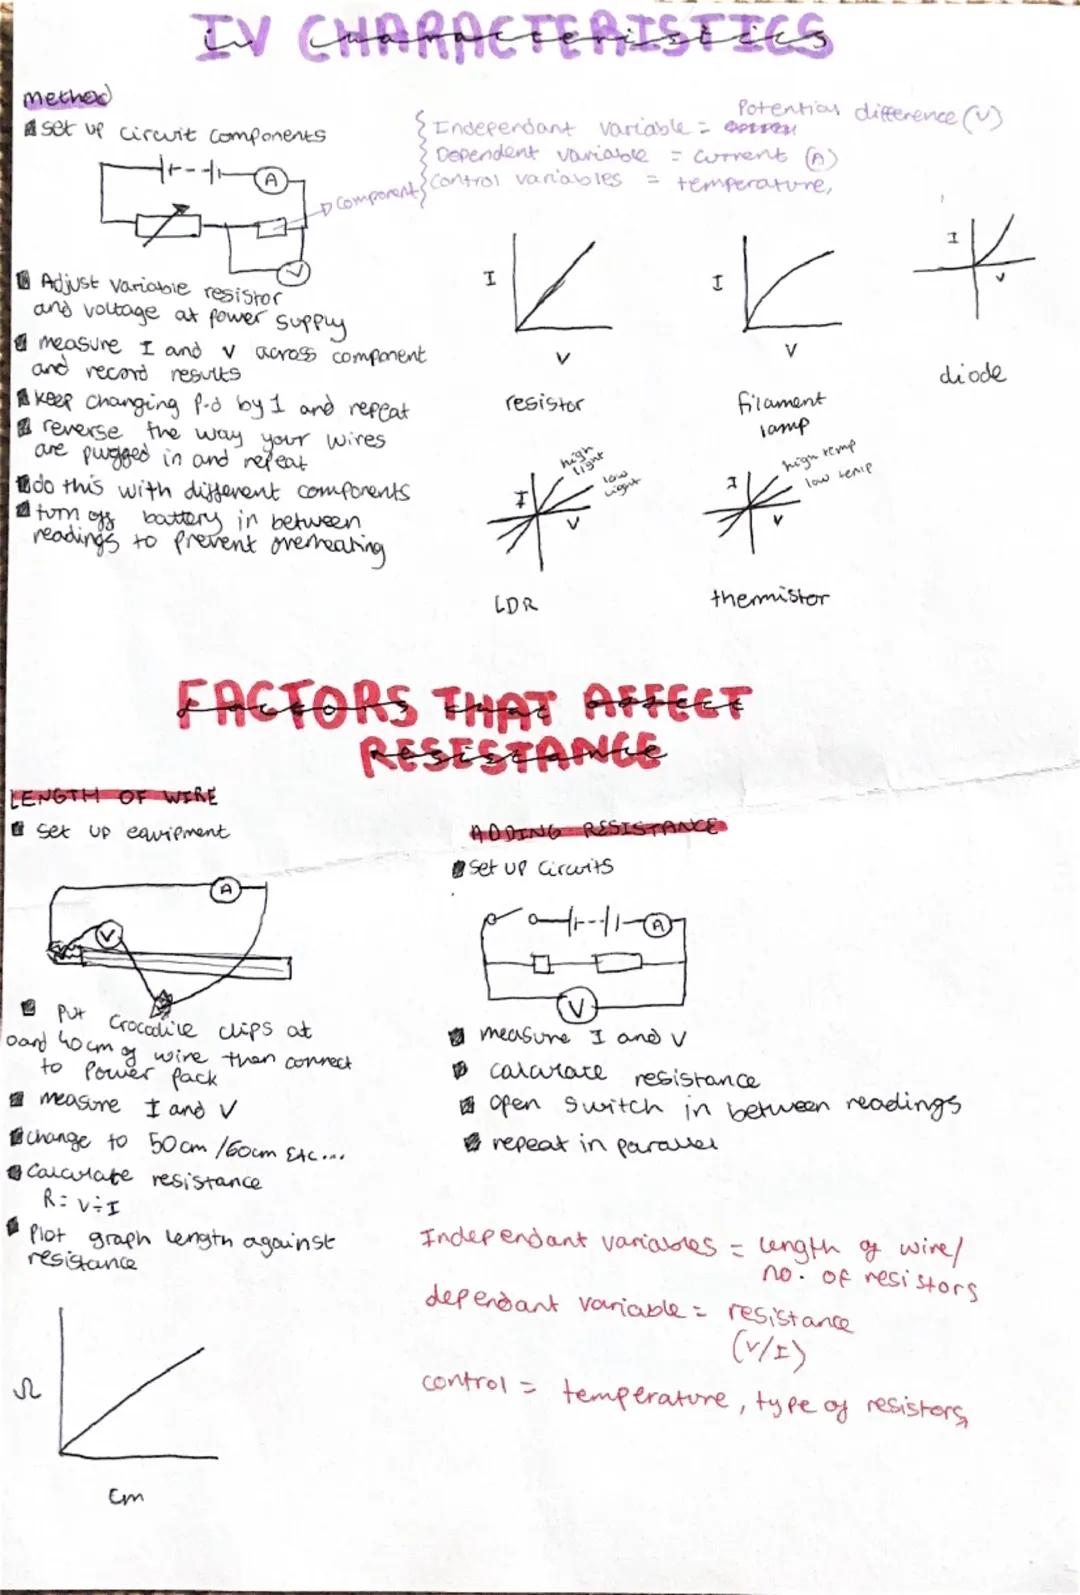 IV CHARACTERISTICS
iv characteristics
method
set up circuit components
A
component
V
Independant variable = Potential difference (V)
Dependent variable = current (A)
Control variables = temperature,
Adjust variable resistor
and voltage at power supply
measure I and V across component
and record results
keep changing p.d by 1 and repeat
reverse the way your wires
are plugged in and repeat
do this with different components
turn off battery in between
readings to prevent overheating
I
V
resistor
I
V
filament
lamp
I
V
diode
I
V
high
light
low
light
LDR
I
V
high temp
low temp
thermistor
FACTORS THAT AFFECT
factors that affect
RESISTANCE
resistance
LENGTH OF WIRE
set up equipment
A
V
Put crocodile clips at
0 and 40cm of wire then connect
to power pack
measure I and V
change to 50cm /60cm Etc...
Calculate resistance
R= V÷I
Plot graph length against
resistance
Ω
cm
ADDING RESISTANCE
set up circuits
A
V
measure I and V
calculate resistance
open switch in between readings
repeat in parallel
Independant variables = length of wire/
no. of resistors
dependant variable = resistance
(V/I)
control = temperature, type of resistors,